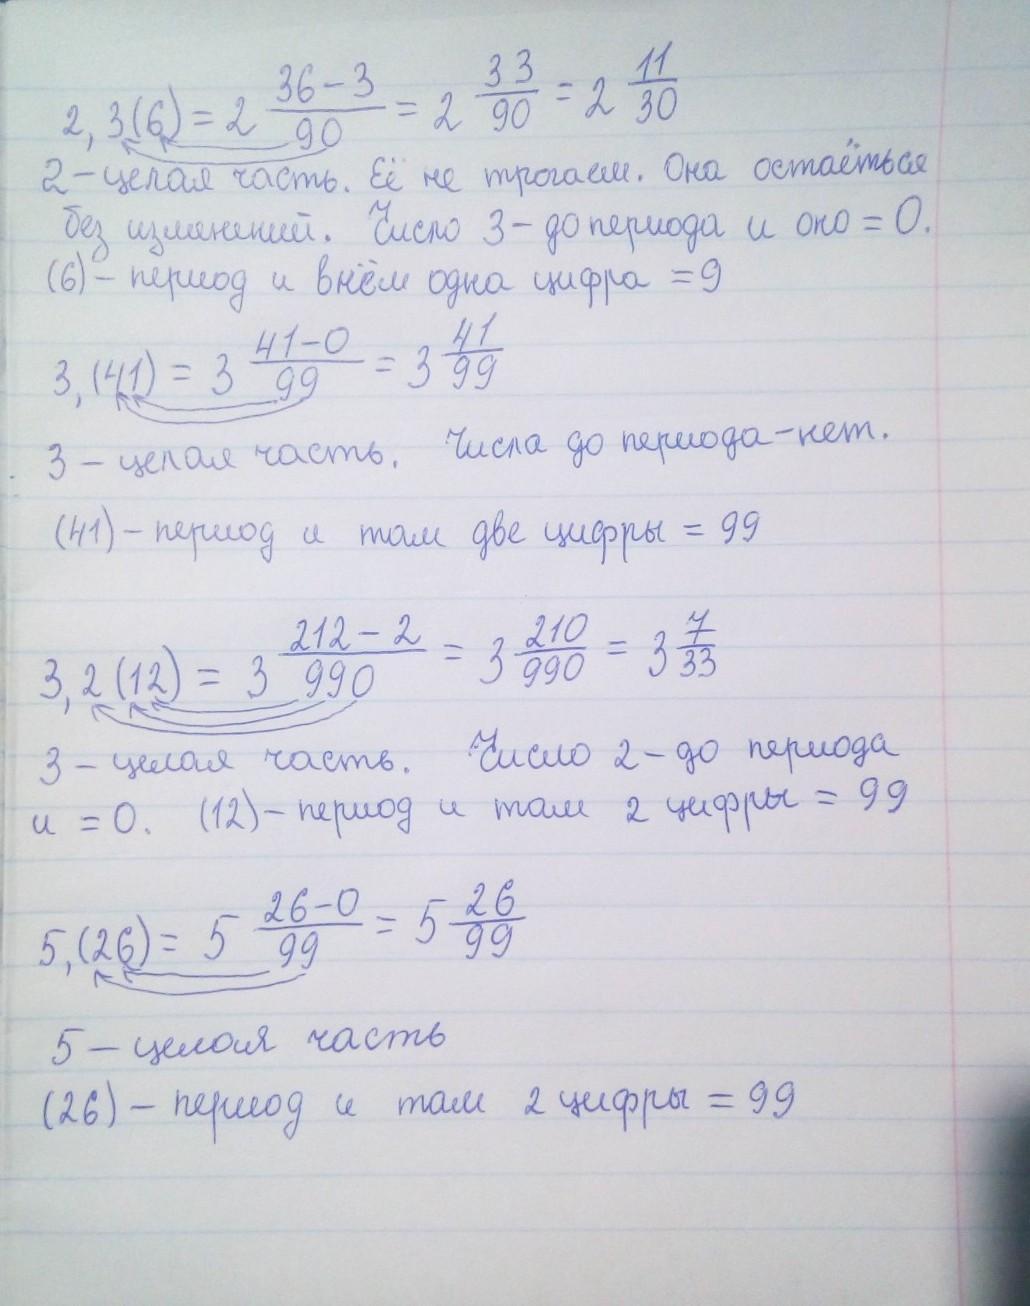 2,3(6) = 2 36-3/90 = 2 33/90 = 2 11/30
2 - целая часть. Её не трогаем. Она остаёться
без изменений. Число 3 - до периода и оно = 0.
(6) - период и в нём одна цифра = 9
3,(41) = 3 41-0/99 = 3 41/99
3 - целая часть. Числа до периода - нет.
(41) - период и там две цифры = 99
3,2(12) = 3 212-2/990 = 3 210/990 = 3 7/33
3 - целая часть. Число 2 - до периода
и = 0. (12) - период и там 2 цифры = 99
5,(26) = 5 26-0/99 = 5 26/99
5 - целая часть
(26) - период и там 2 цифры = 99